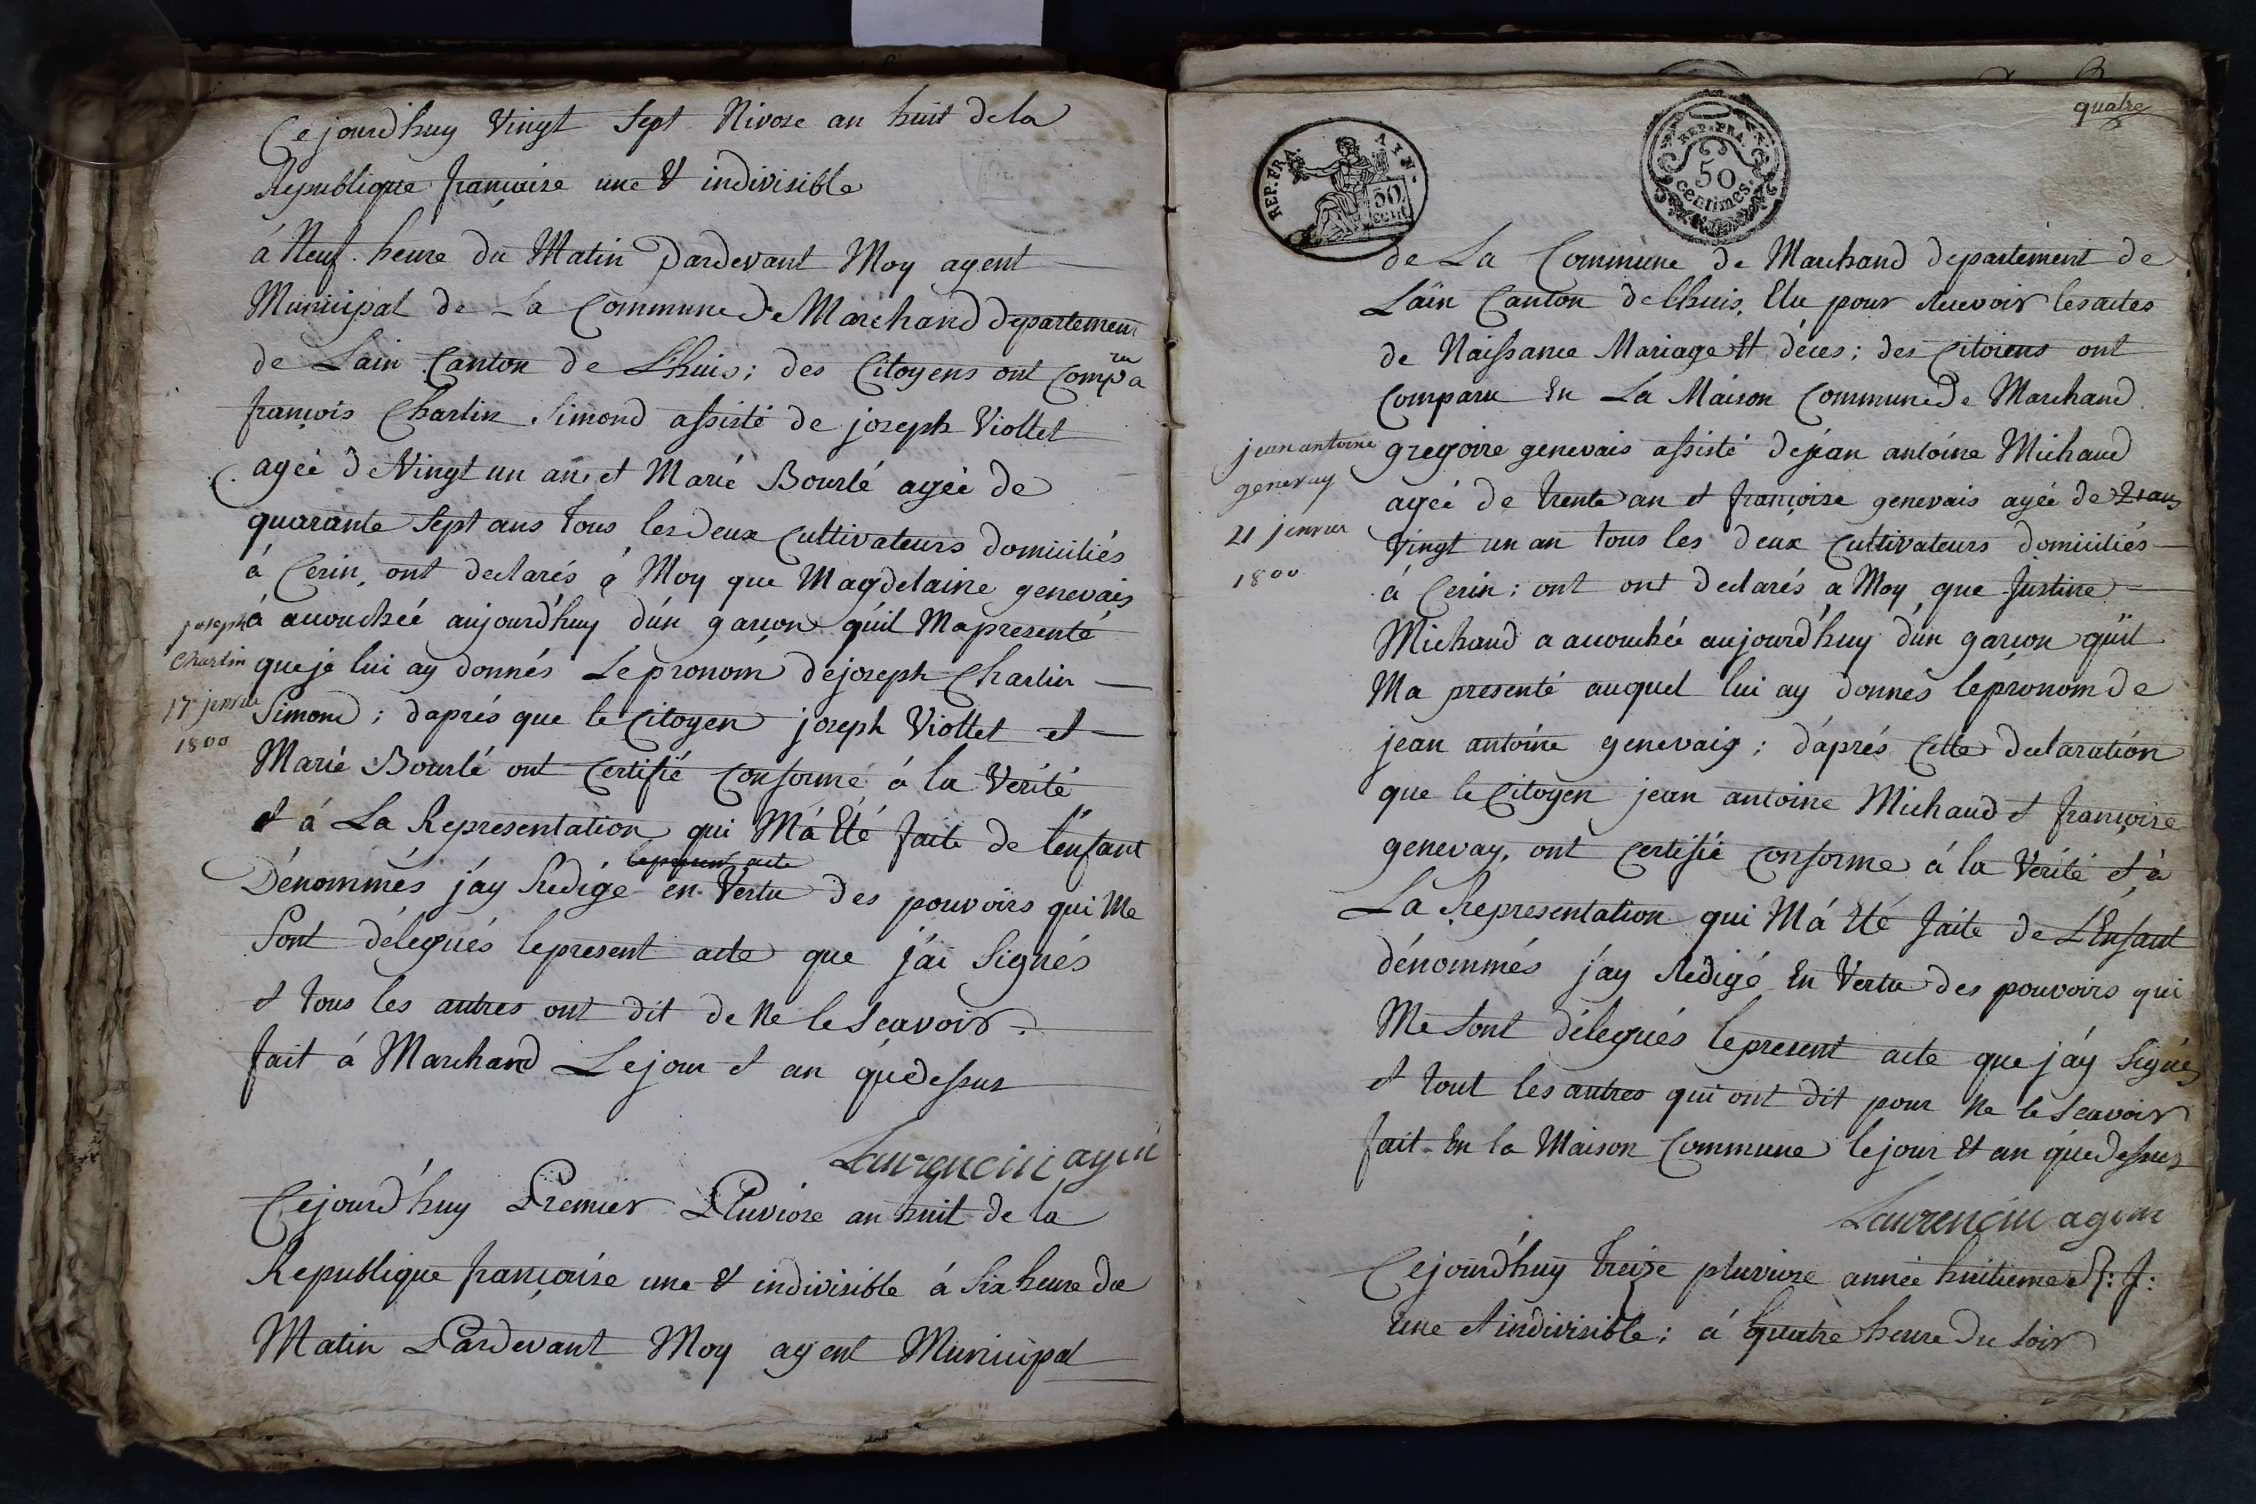 Cejourd'huy Vingt Sept Nivose an huit de la
Republique francaise une & indivisible
à Neuf heure du Matin Pardevant Moy agent
Municipal de La Commune de Marchand departement
de Lain Canton de Lhuis; des Citoyens ont Compa
ru
françois Charlin Simond assisté de joseph Viollet
ageé de Vingt un an et Marié Bourlé ageé de
quarante Sept ans tous les deux Cultivateurs domiciliés
á Cerin, ont declarés á Moy que Magdelaine genevais
á accoucheé aujourd'huy d'un garcon qu'il Ma presenté
que je lui ay donnés Le pronom de joseph Charlin
Simond; d'aprés que le Citoyen joseph Viollet et
Marié Bourlé ont Certifié Conforme á la Verité
et á La Representation qui M'á Eté faite de l'enfant
le present acte
Dénommés j'ay Redigé en Vertu des pouvoirs qui Me
Sont délegués le present acte que j'ai Signés
et tous les autres ont dit de Ne le Scavoir.
fait á Marchand Le jour et an que dessus
Laurencin agent
joseph
Charlin
17 jenvier
1800
Cejourd'huy Premier Pluviose an huit de la
Republique françoise une & indivisible á Six heure du
Matin Pardevant Moy agent Municipal
quatre
REP. FRA. AIN.
50
cent
REP. FRA.
50
centimes.
de La Commune de Marchand departement de
Laïn Canton de Lhuis, Elu pour Recevoir les actes
de Naissance Mariage Et déces; des Citoiens ont
Comparu En La Maison Commune de Marchand
gregoire genevais assisté de jean antoine Michaud
ageé de trente an et françoise genevais ageé de 21 ans
Vingt un an tous les deux Cultivateurs domiciliés
á Cerin; ont ont declarés a Moy que Justine
Michaud a accoucheé aujourd'huy d'un garcon qu'il
Ma presenté auquel lui ay donnés le pronom de
jean antoine genevais; d'aprés Cette declaration
que le Citoyen jean antoine Michaud et françoise
genevay, ont Certifié Conforme á la Verité et á
La Representation qui M'á Eté faite de L'Enfant
dénommés j'ay Redigé En Vertu des pouvoirs qui
Me Sont délegués le present acte que j'ay Signés
et tout les autres qui ont dit pour Ne le Scavoir
fait En la Maison Commune le jour Et an que dessus
Laurencin agent
jean antoine
genevay
21 jenvier
1800
Cejourd'huy treize pluviose année huitieme R: f:
une et indivisible; á quatre heure du Soir